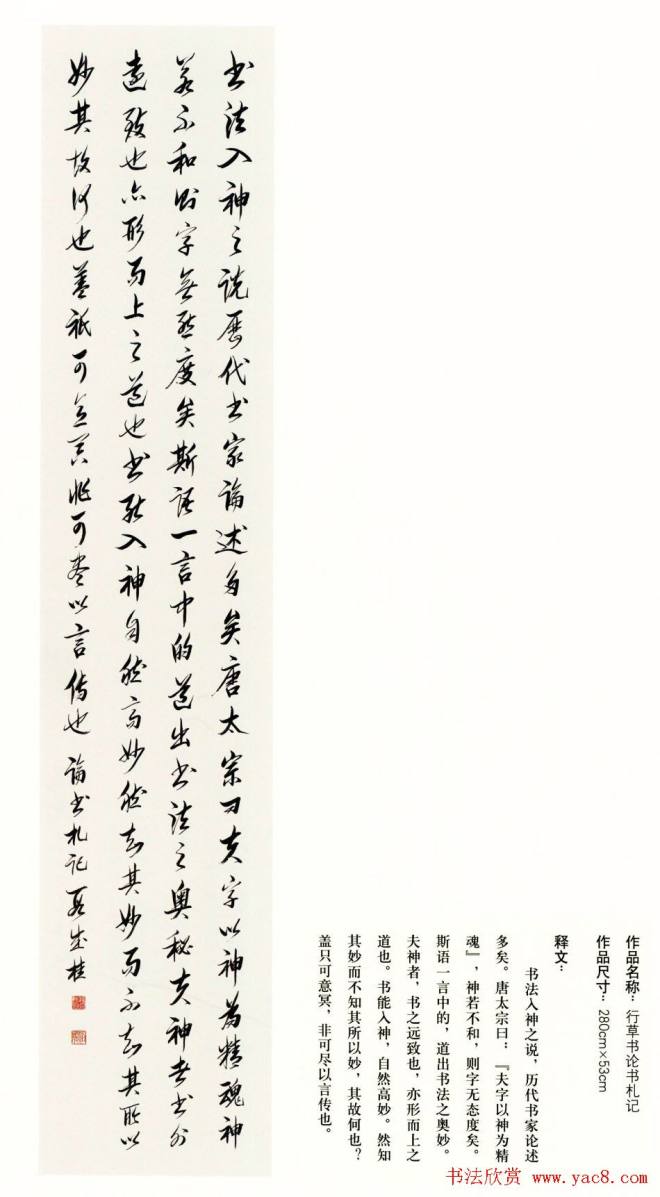 作品名称：行草书论书札记
作品尺寸：280cm×53cm
释文：
书法入神之说，历代书家论述
多矣。唐太宗曰：『夫字以神为精
魂』，神若不和，则字无态度矣。
斯语一言中的，道出书法之奥妙。
夫神者，书之远致也，亦形而上之
道也。书能入神，自然高妙。然知
其妙而不知其所以妙，其故何也？
盖只可意冥，非可尽以言传也。
书法入神之说歷代书家論述多矣唐太宗曰夫字以神為精魂神
若不和则字無態度矣斯語一言中的道出书法之奥秘夫神者书
遠致也亦形而上之道也书能入神自然高妙然知其妙而不知其所以
妙其故何也蓋祇可意冥非可盡以言传也 論书札记 聂成桂
书法欣赏 www.yac8.com